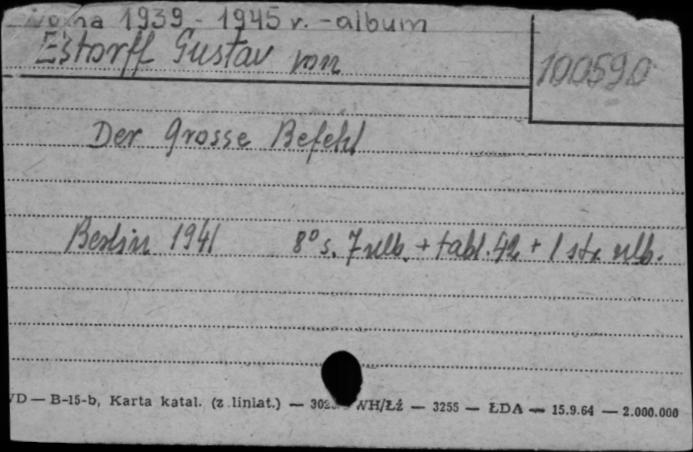 Wojna 1939 - 1945 r. - album
Estorff Gustav von
100590
Der Grosse Befehl
Berlin 1941 8° s. 7 nlb. + tabl. 42 + 1 str. nlb.
VD — B-15-b, Karta katal. (z liniat.) — WH/Łź — 3255 — ŁDA — 15.9.64 — 2.000.000